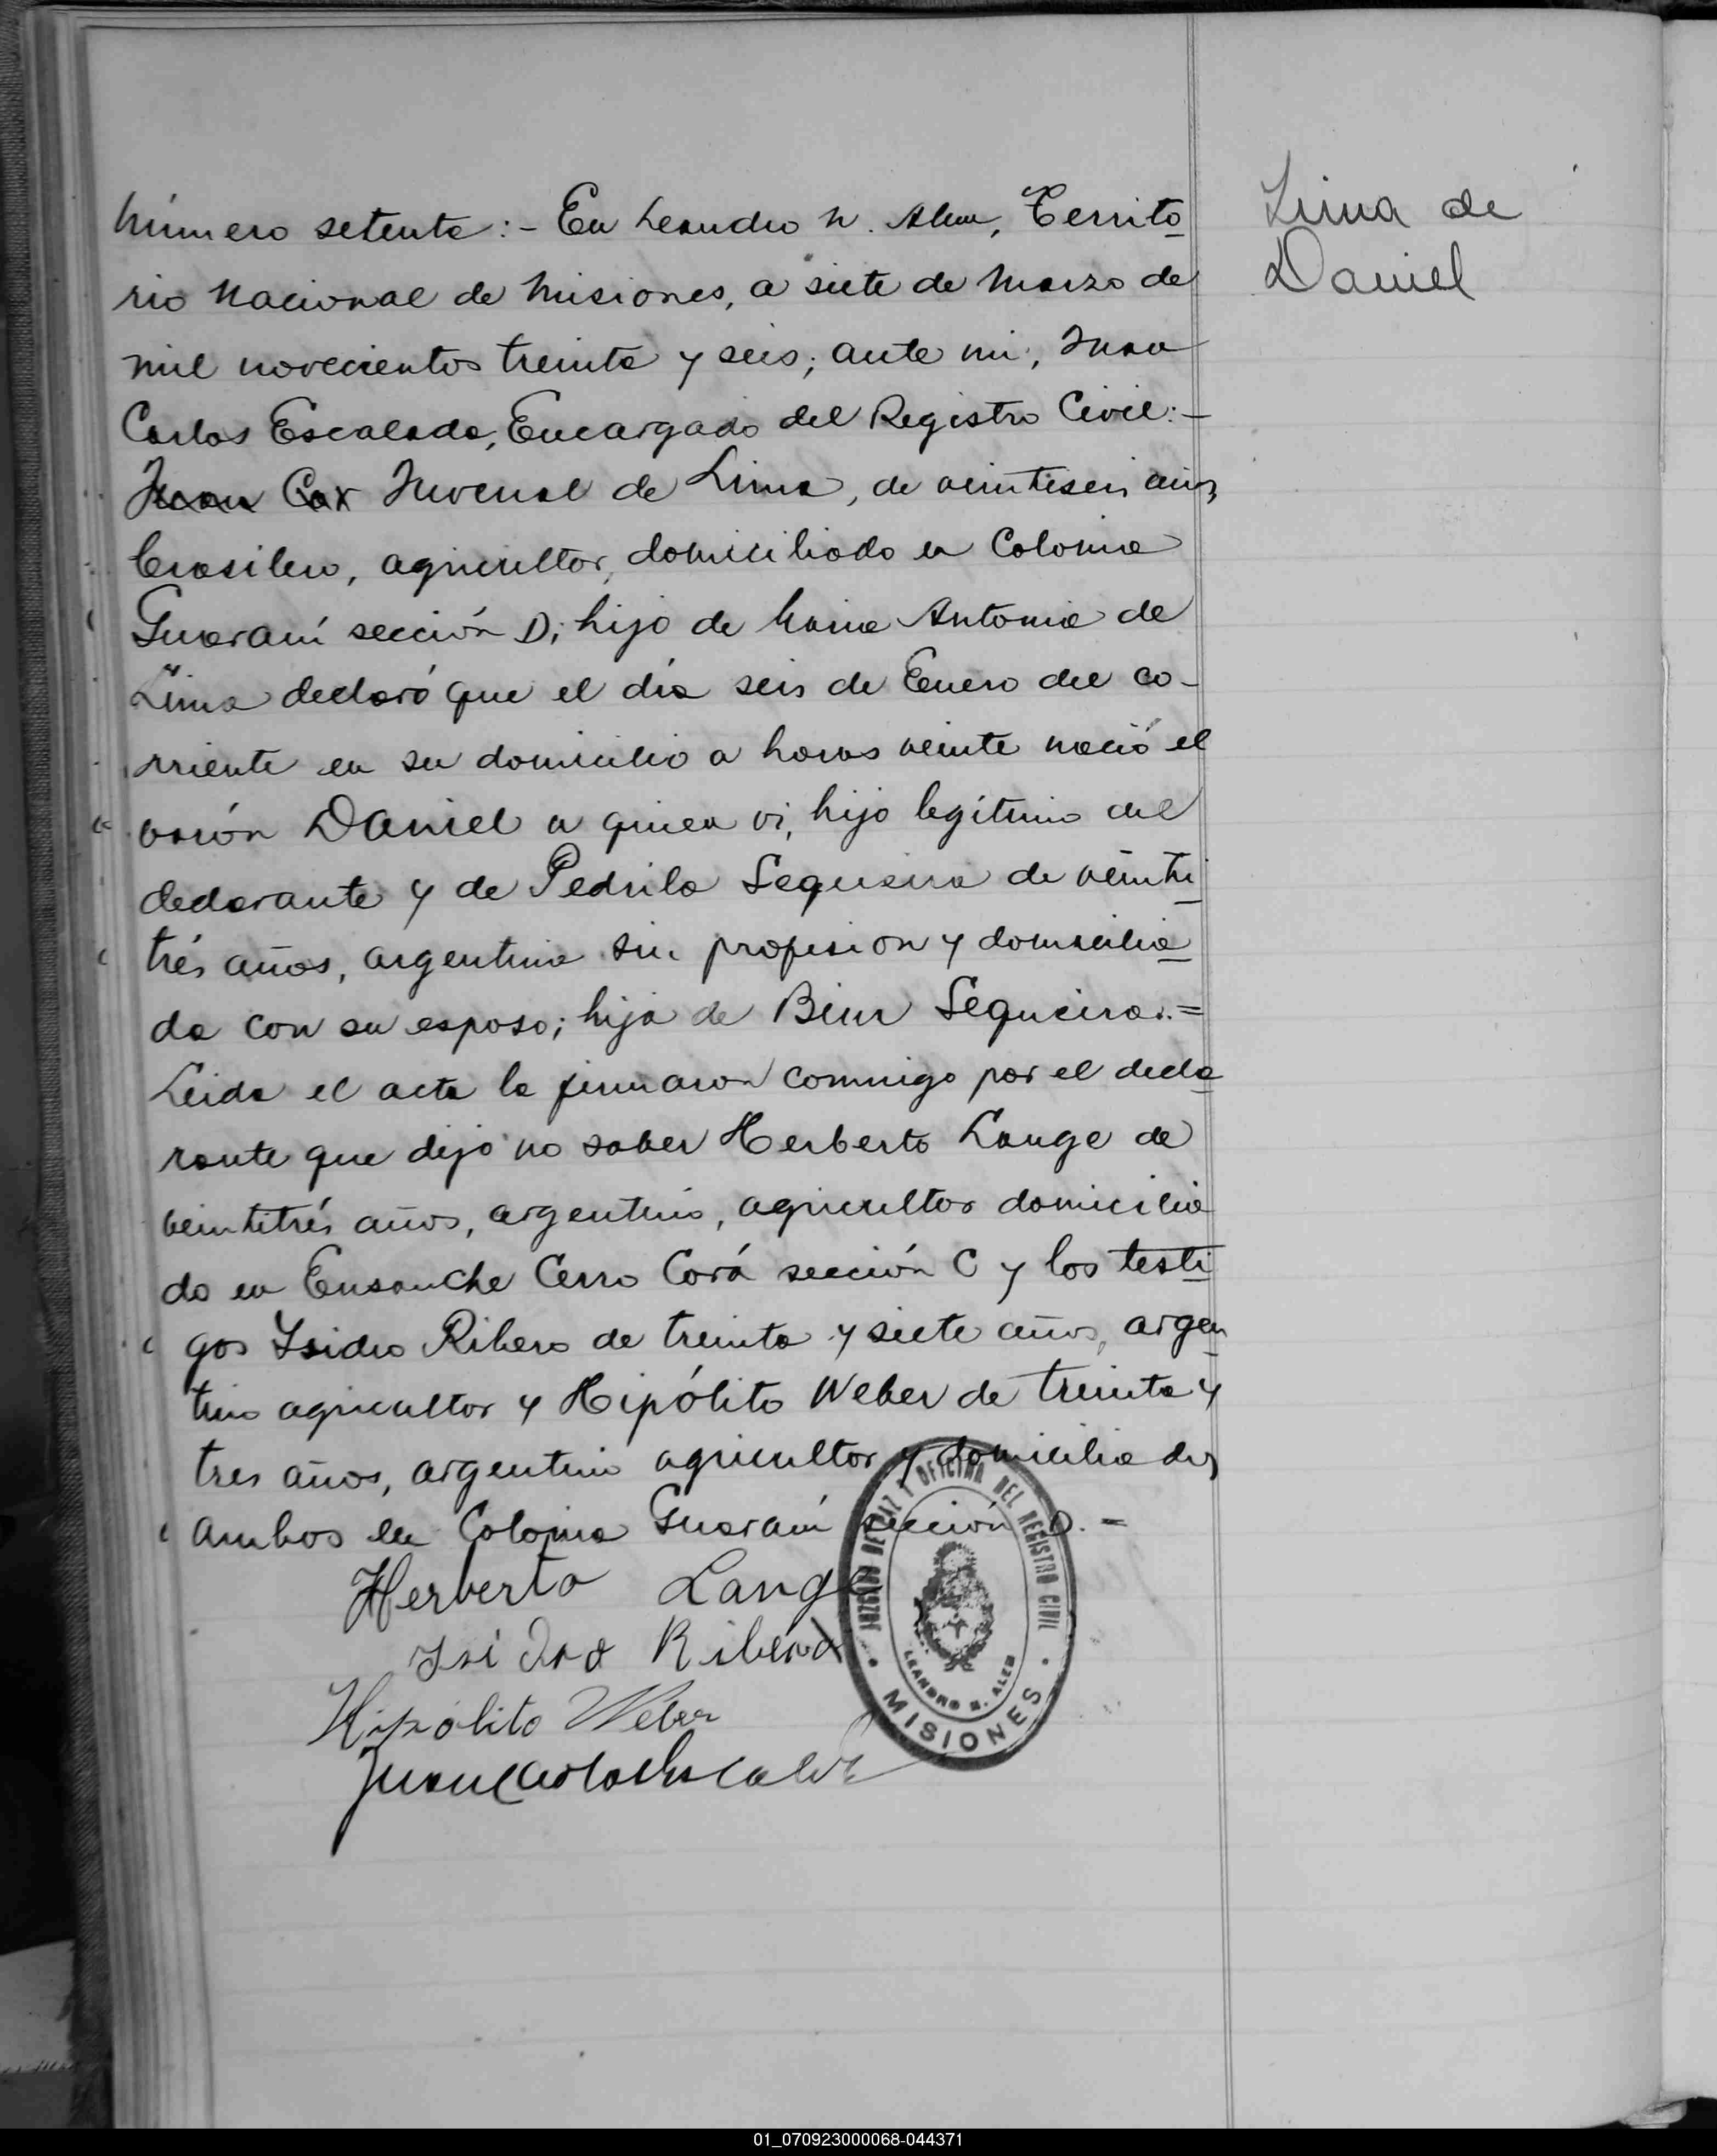 Número setenta :- En Leandro N. Alem, Territo
rio Nacional de Misiones, a siete de Marzo de
mil novecientos treinta y seis; ante mi, Juan
Carlos Escalada, Encargado del Registro Civil:-
Juan Car Juvenal de Lima, de veintiseis años,
brasilero, agricultor, domiciliado en Colonia
Guaraní sección D; hijo de Maria Antonia de
Lima declaró que el día seis de Enero del co-
rriente en su domicilio a horas veinte nació el
varón Daniel a quien vi, hijo legítimo del
declarante y de Pedrila Sequeira de veinti
trés años, argentina sin profesion y domicilia
da con su esposo; hija de Sequeira.=
Leida el acta la firmaron conmigo por el decla
rante que dijo no saber Herberto Lange de
veintitrés años, argentino, agricultor domicilia
do en Ensanche Cerro Corá sección C y los testi
gos Isidro Ribero de treinta y siete años, argen
tino agricultor y Hipólito Weber de treinta y
tres años, argentino agricultor y domiciliados
ambos en Colonia Guaraní sección D. =
Herberto Lange
Isidro Ribero
Hipólito Weber
Juan Carlos Escalada
Lima de
Daniel
JUZGADO DE PAZ Y OFICINA DEL REGISTRO CIVIL
LEANDRO N. ALEM
MISIONES
01_070923000068-044371